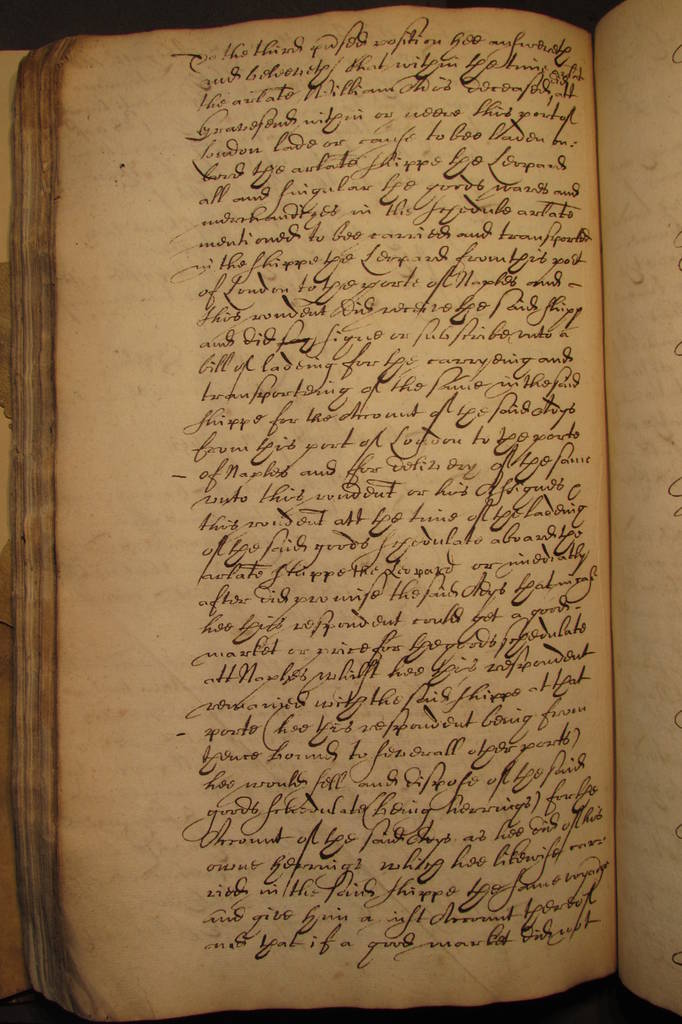 To the third pnsed position hee answereth
and beleeveth that within the time
the arlate William Adis deceased, did att
Gravesend within or neere this port of
London lade or cause to bee laden on:
bord the arlate shippe the Leopard
all and singular the goods wares and
merchandizes in the schedule arlate
mentioned to bee carried and transported
in the shippe the Leopard from this port
of London to the porte of Naples and
this rondent did receive the said shipp
and did signe or subscribe unto a
bill of ladeing for the carryeing and
transporteing of the same in the said
shippe for the Account of the said Adys
from this port of London to the porte
of Naples and for delivery of the same
unto this rondent or his Assignes
this rondent att the time of the ladeing
of the said goods schedulate aboard the
arlate shippe the Leopard or imediatly
after did promise the said Adys that in case
hee this respondent could get a good
market or price for the goods schedulate
att Naples whilst hee this respondent
remained with the said shippe at that
porte (hee this respondent being from
thence bound to severall other ports)
hee would sell and dispose of the said
goods schedulate (being herrings) for the
Account of the said Adys as hee did of his
owne herrings which hee likewise car=
ried in the said shippe the same voyadge
and give him a just Account thereof
and that if a good market did not